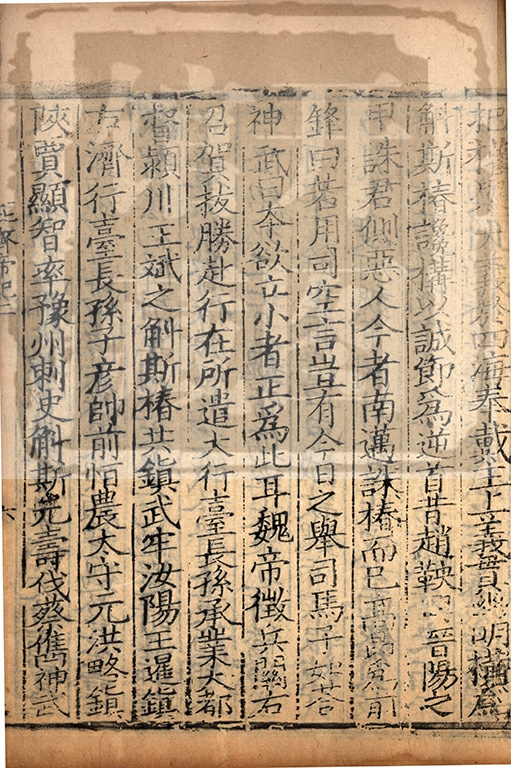 權舉大義於四海奉戴王上義貫幽明橫爲
斛斯椿讒構以誠節爲逆首昔趙鞅興晉陽之
甲誅君側惡人今者南邁誅椿而已高昂爲前
鋒曰若用司空言豈有今日之舉司馬子如荅
神武曰本欲立小者正爲此耳魏帝徵兵關右
召賀拔勝赴行在所遣大行臺長孫承業大都
督潁川王斌之斛斯椿共鎮武牢汝陽王暹鎮
石濟行臺長孫子彦帥前恒農太守元洪略鎮
陝賈顯智率豫州刺史斛斯元壽伐蔡儁神武
帝紀二 六